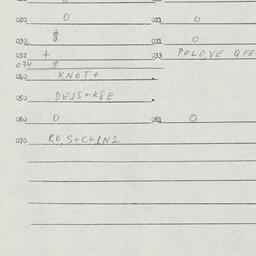 020 0 021 0
030 $ 031 0
032 + 033 POLO,VE QFE
034 $
040 KNOT+
050 DEJS+K8E
060 0 061 0
070 RO,S+C+IN1